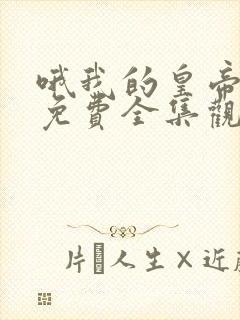 哦我的皇帝
免費全集觀
片 人生×近